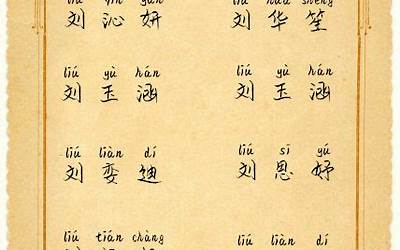 刘沁妍 刘华笙
liú yù hán liú yù hán
刘玉涵 刘玉涵
liú liàn dí liú sī yú
刘娈迪 刘思妤
liú tiān chàng liú liàn dí